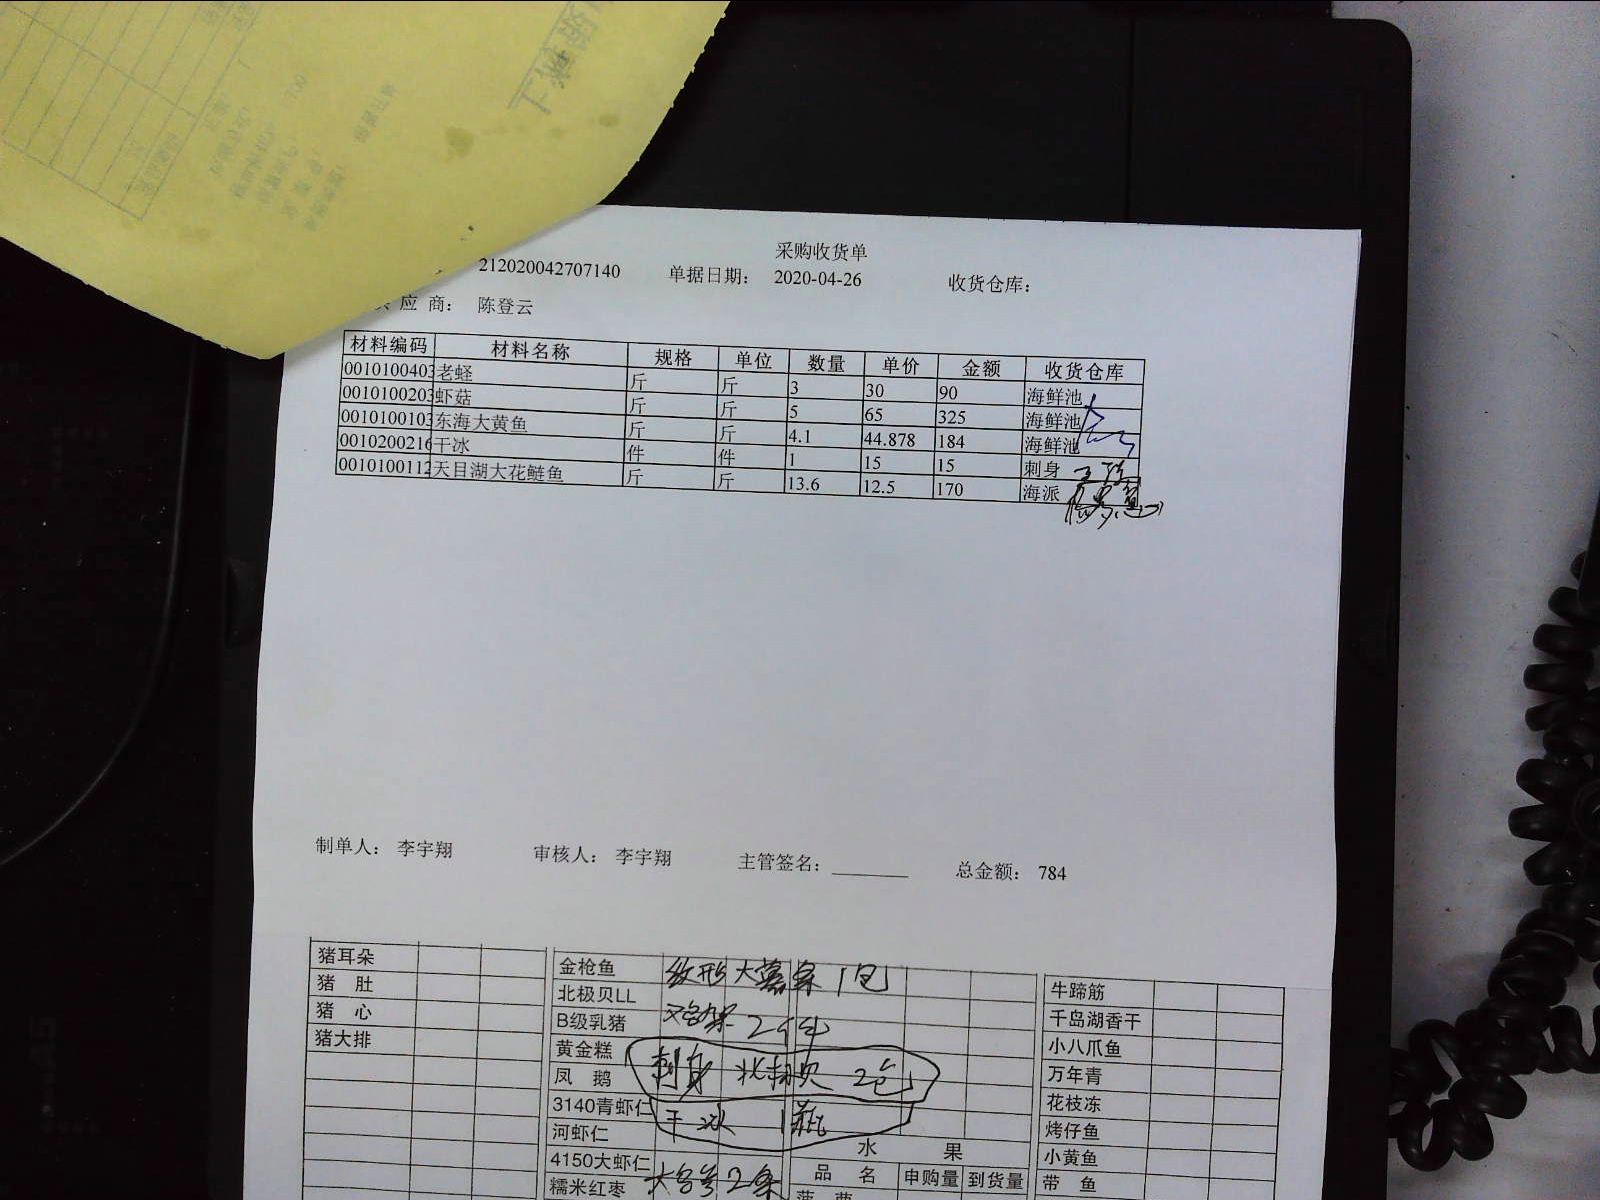 采购收货单
212020042707140 单据日期： 2020-04-26 收货仓库：
应 商： 陈登云
材料编码 材料名称 规格 单位 数量 单价 金额 收货仓库
0010100403 老蛏 斤 斤 3 30 90 海鲜池
0010100203 虾菇 斤 斤 5 65 325 海鲜池
0010100103 东海大黄鱼 斤 斤 4.1 44.878 184 海鲜池
0010200216 干冰 件 件 1 15 15 刺身
0010100112 天目湖大花鲢鱼 斤 斤 13.6 12.5 170 海派
制单人： 李宇翔 审核人： 李宇翔 主管签名： 总金额： 784
猪耳朵 金枪鱼 大 1包 牛蹄筋
猪 肚 北极贝LL 千岛湖香干
猪 心 B级乳猪 鸡架 2件 小八爪鱼
猪大排 黄金糕 刺身 北极贝 2包 万年青
凤 鹅 花枝冻
3140青虾仁 干冰 1瓶 烤仔鱼
河虾仁 水 果 小黄鱼
4150大虾仁 品 名 申购量 到货量 带 鱼
糯米红枣 2条 菠